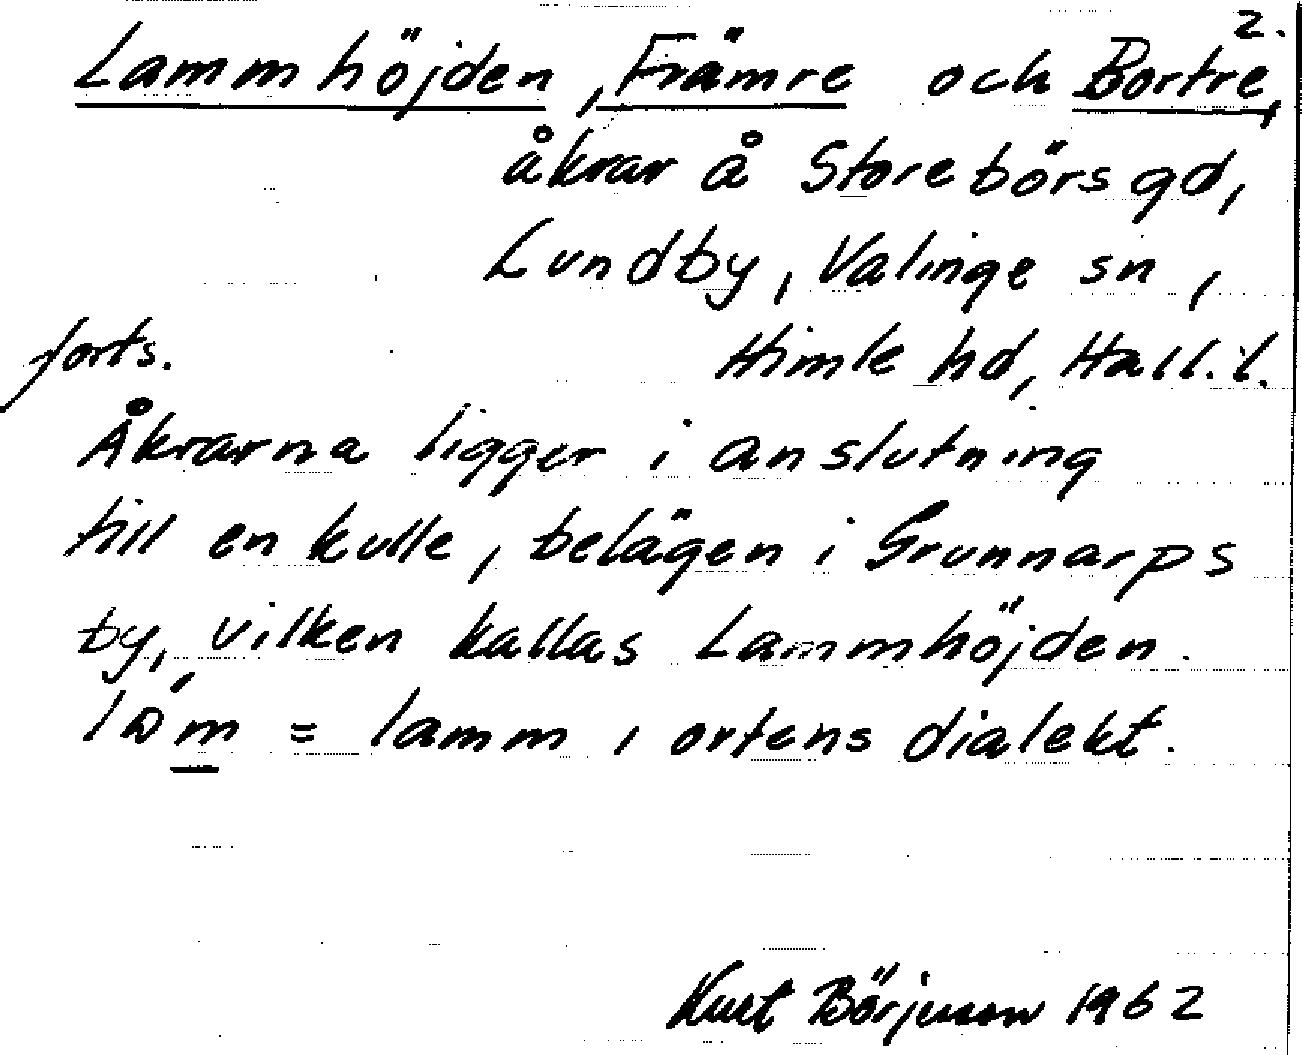 2.
Lammhöjden, Främre och Bortre,
åkrar å Storebörs gd,
Lundby, Valinge sn,
forts. Himle hd, Hall. l.
Åkrarna ligger i anslutning
till en kulle, belägen i Grunnarps
by, vilken kallas Lammhöjden.
= lamm i ortens dialekt.
Kurt Börjeson 1962